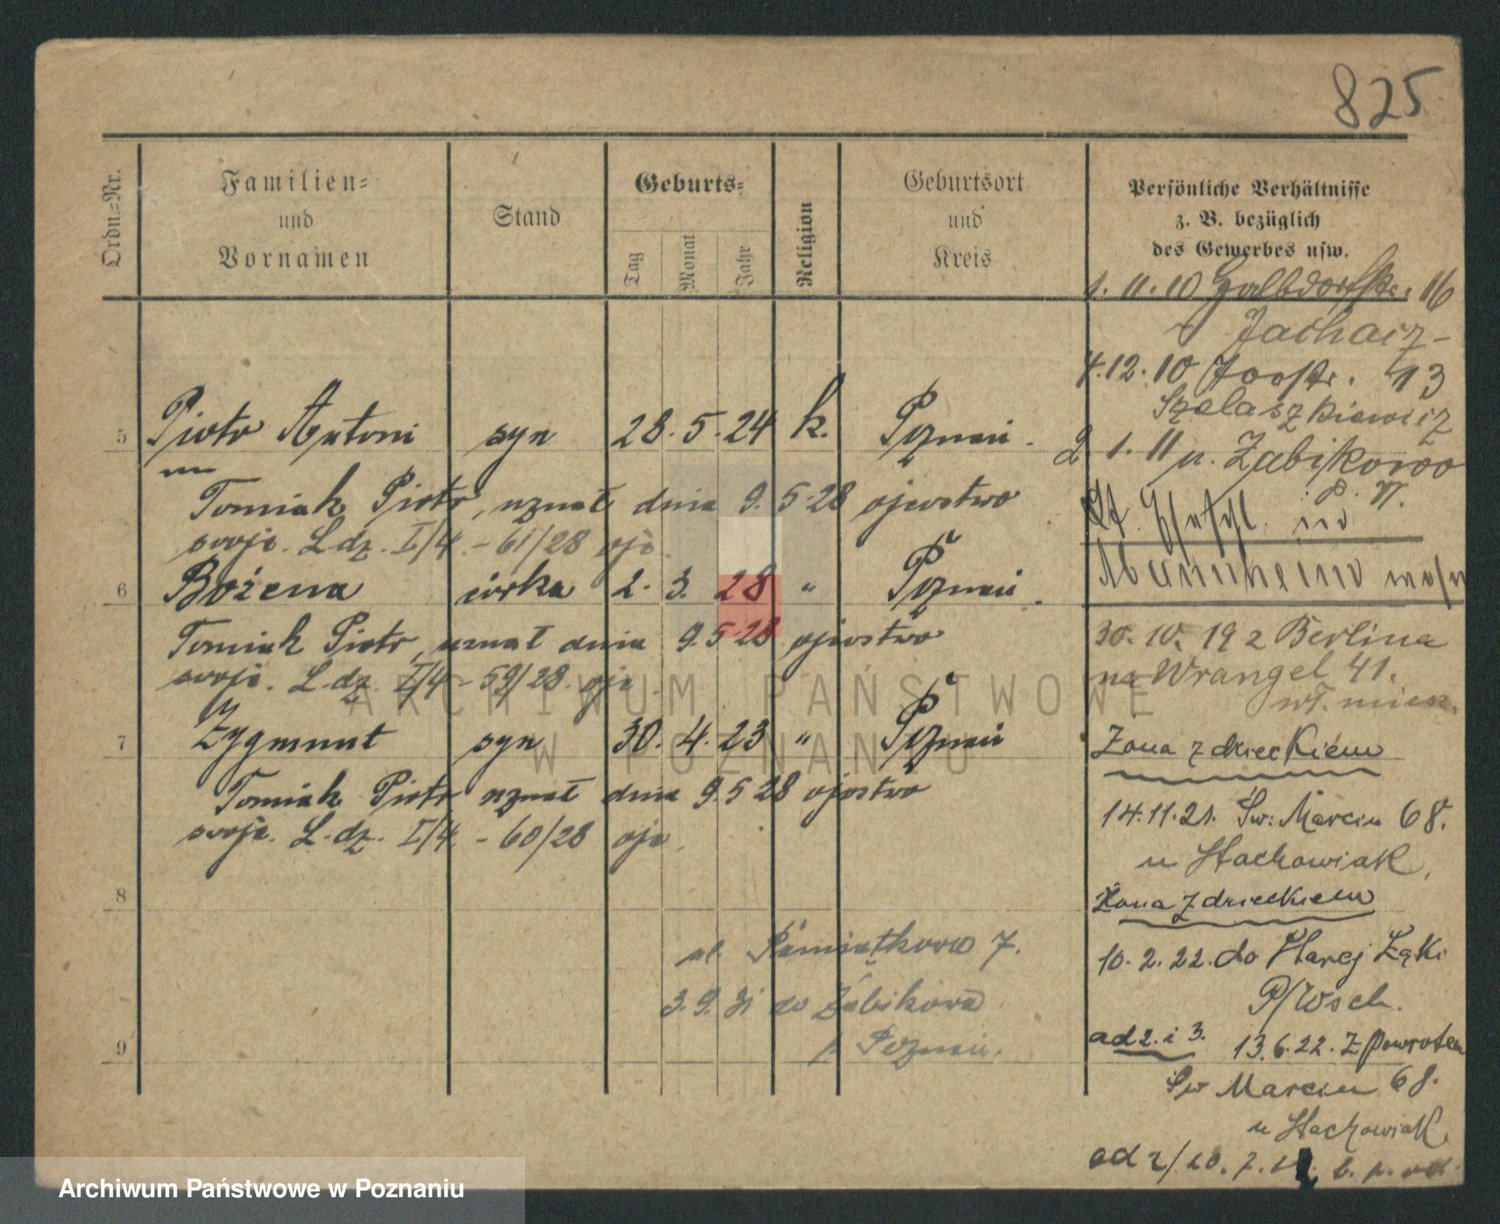 825
Ordn.-Nr.
Familien-
und
Vornamen
Stand
Geburts-
Tag
Monat
Jahr
Religion
Geburtsort
und
Kreis
Persönliche Verhältnisse
z. B. bezüglich
des Gewerbes usw.
5 Piotr Antoni syn 28. 5. 24 k. Poznań.
Tomiak Piotr, uznał dnia 9. 5. 28 ojcostwo
swoje. L. dz. I/4. - 61/28
6 Bożena córka 2. 3. 28 " Poznań.
Tomiak Piotr, uznał dnia 9. 5. 28 ojcostwo
swoje. L. dz. I/4 - 59/28
7 Zygmunt syn 30. 4. 23 " Poznań
Tomiak Piotr uznał dnia 9. 5. 28 ojcostwo
swoje. L. dz. I/4 - 60/28
8
ul. Pamiątkowa 7.
3. 9. 31 do Żabikowa
p. Poznań.
9
1. 11. 10 16
4. 12. 10 13
Szelaszkiewicz
2 1. 11 n. Żabikowo
in
Mannheim
30. 10. 19 z Berlina
na Wrangel 41.
Żona z dzieckiem
14. 11. 21. Św. Marcin 68.
u Stachowiak,
Żona z dzieckiem
10. 2. 22. do Starej Łąki
P/Wsch.
ad 2. i 3. 13. 6. 22. Z powrotem
Św Marcin 68.
u Stachowiak.
ad 2/
ARCHIWUM PAŃSTWOWE
W POZNANIU
Archiwum Państwowe w Poznaniu